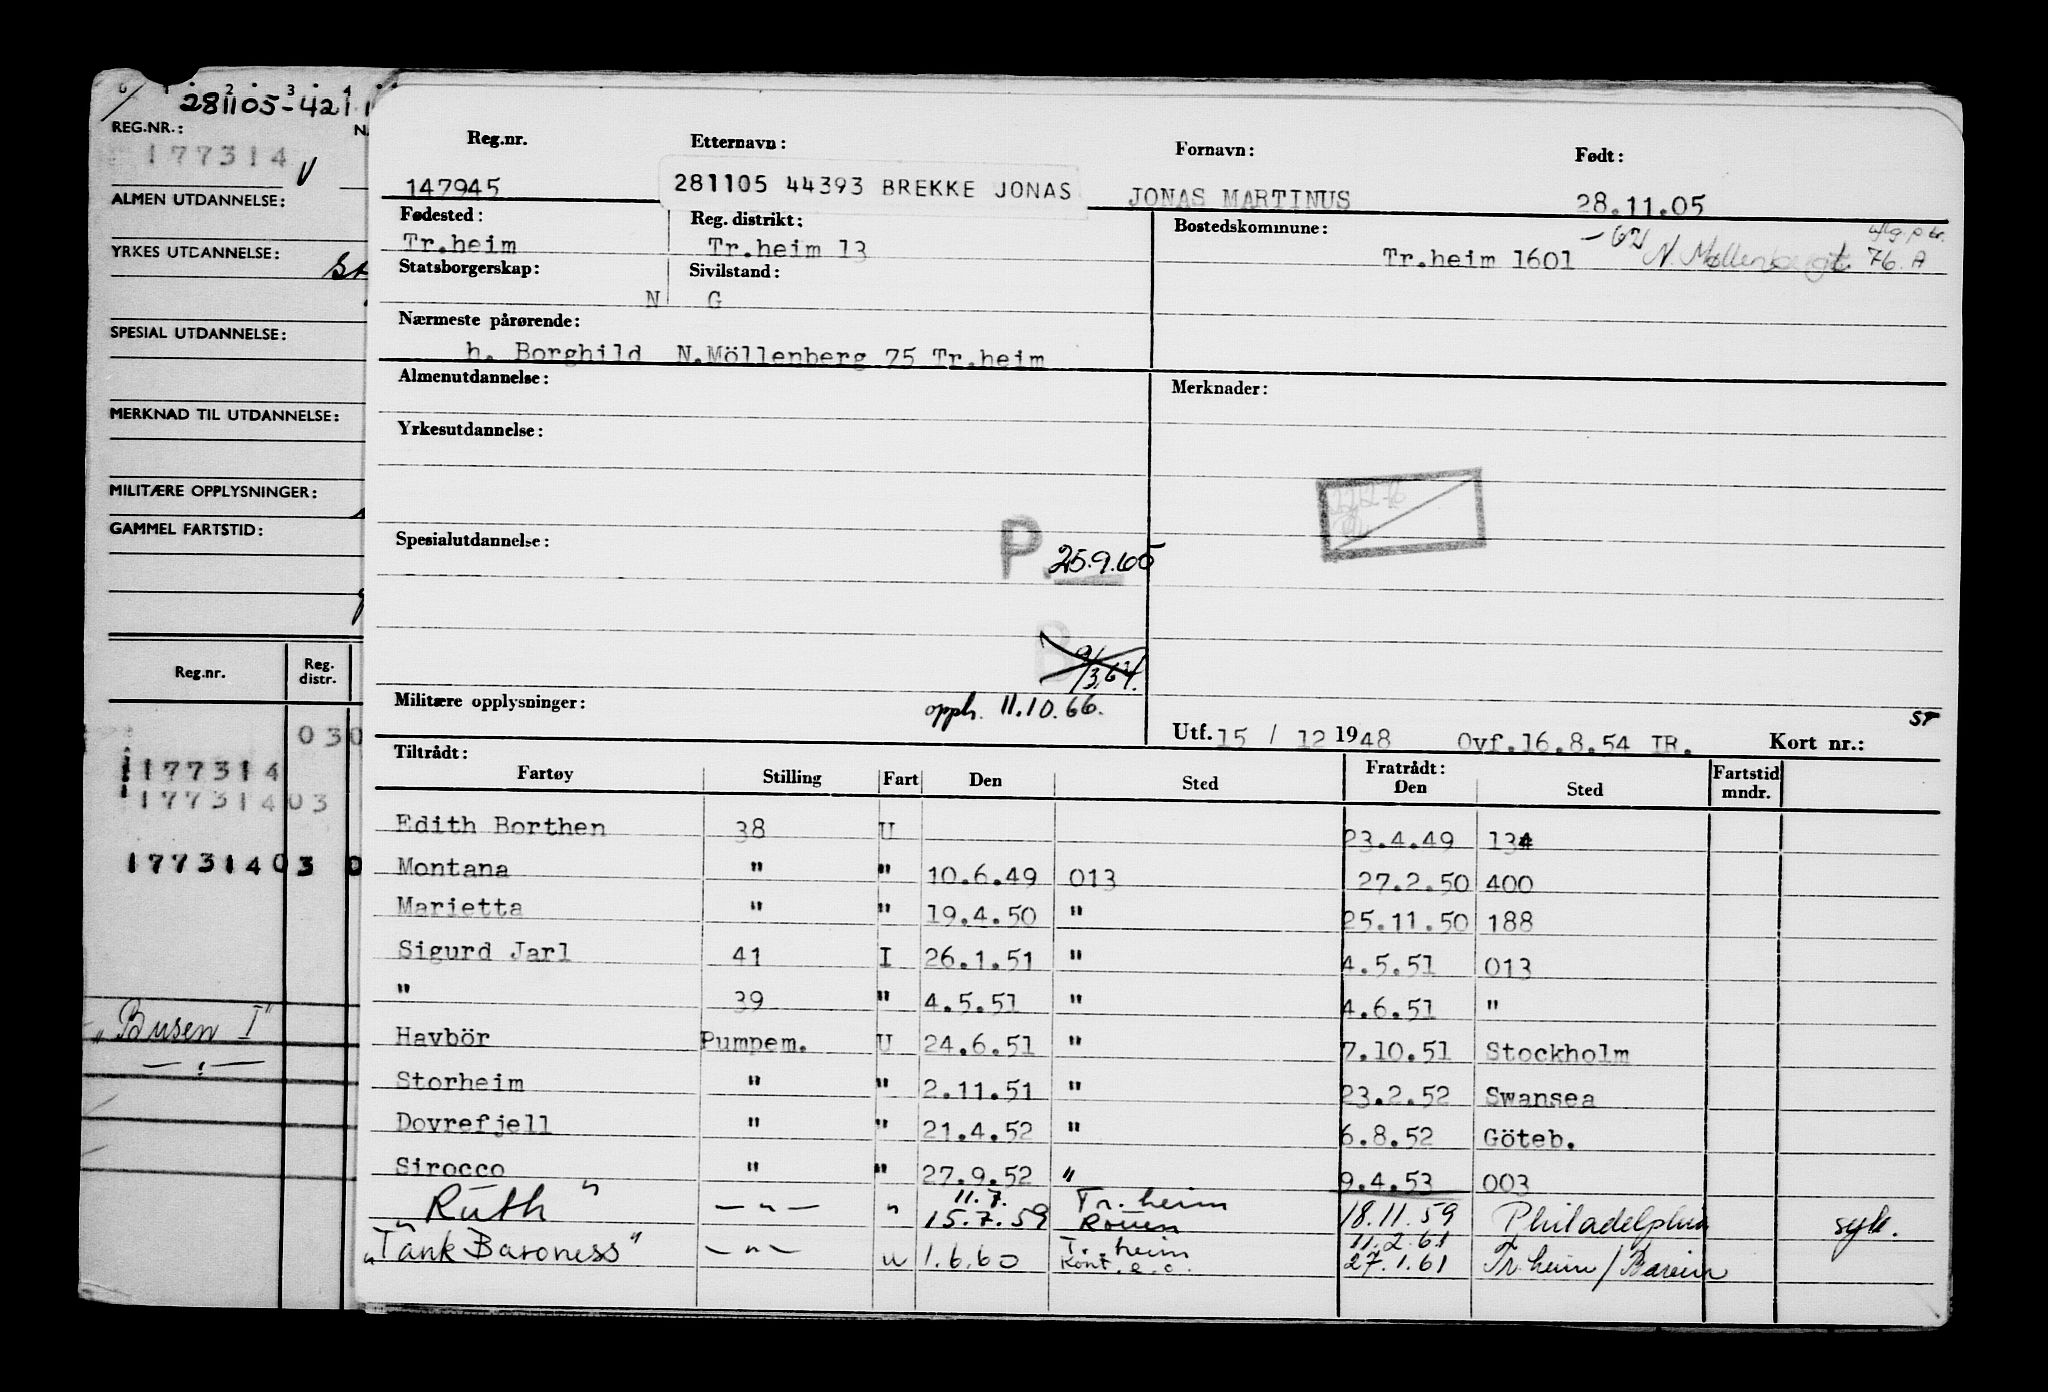 1 2 3 4
281105-421
REG.NR.:
177314 V
ALMEN UTDANNELSE:
YRKES UTDANNELSE:
SPESIAL UTDANNELSE:
MERKNAD TIL UTDANNELSE:
MILITÆRE OPPLYSNINGER:
GAMMEL FARTSTID:
Reg.nr. Reg. distr.
030
177314
17731403
17731403 0
"Busen I"
Reg.nr. Etternavn: Fornavn: Født:
147945 281105 44393 BREKKE JONAS JONAS MARTINUS 28.11.05
Fødested: Reg. distrikt: Bostedskommune:
Tr.heim Tr.heim 13 Tr.heim 1601 N. Møllenbergt. 76. A
Statsborgerskap: Sivilstand:
N G
Nærmeste pårørende:
h. Borghild N.Möllenberg 75 Tr.heim
Almenutdannelse: Merknader:
Yrkesutdannelse:
Spesialutdannelse: P. 25.9.65
9/3.64.
Militære opplysninger: opph. 11.10.66.
ST
Utf. 15 / 12 1948 Ovf.16.8.54 TR. Kort nr.:
Tiltrådt: Fratrådt: Fartstid
Fartøy Stilling Fart Den Sted Den Sted mndr.
Edith Borthen 38 U 23.4.49 134
Montana " " 10.6.49 013 27.2.50 400
Marietta " " 19.4.50 " 25.11.50 188
Sigurd Jarl 41 I 26.1.51 " 4.5.51 013
" 39 " 4.5.51 " 4.6.51 "
Havbör Pumpem. U 24.6.51 " 7.10.51 Stockholm
Storheim " " 2.11.51 " 23.2.52 Swansea
Dovrefjell " " 21.4.52 " 6.8.52 Göteb.
Sirocco " " 27.9.52 " 9.4.53 003
"Ruth" —"— " 11.7. 15.7.59 Tr.heim Rouen 18.11.59 Philadelphia syk.
"Tank Baroness" —"— u 1.6.60 Tr.heim Kont. e.o. 11.2.61 27.1.61 Tr.heim/Barein